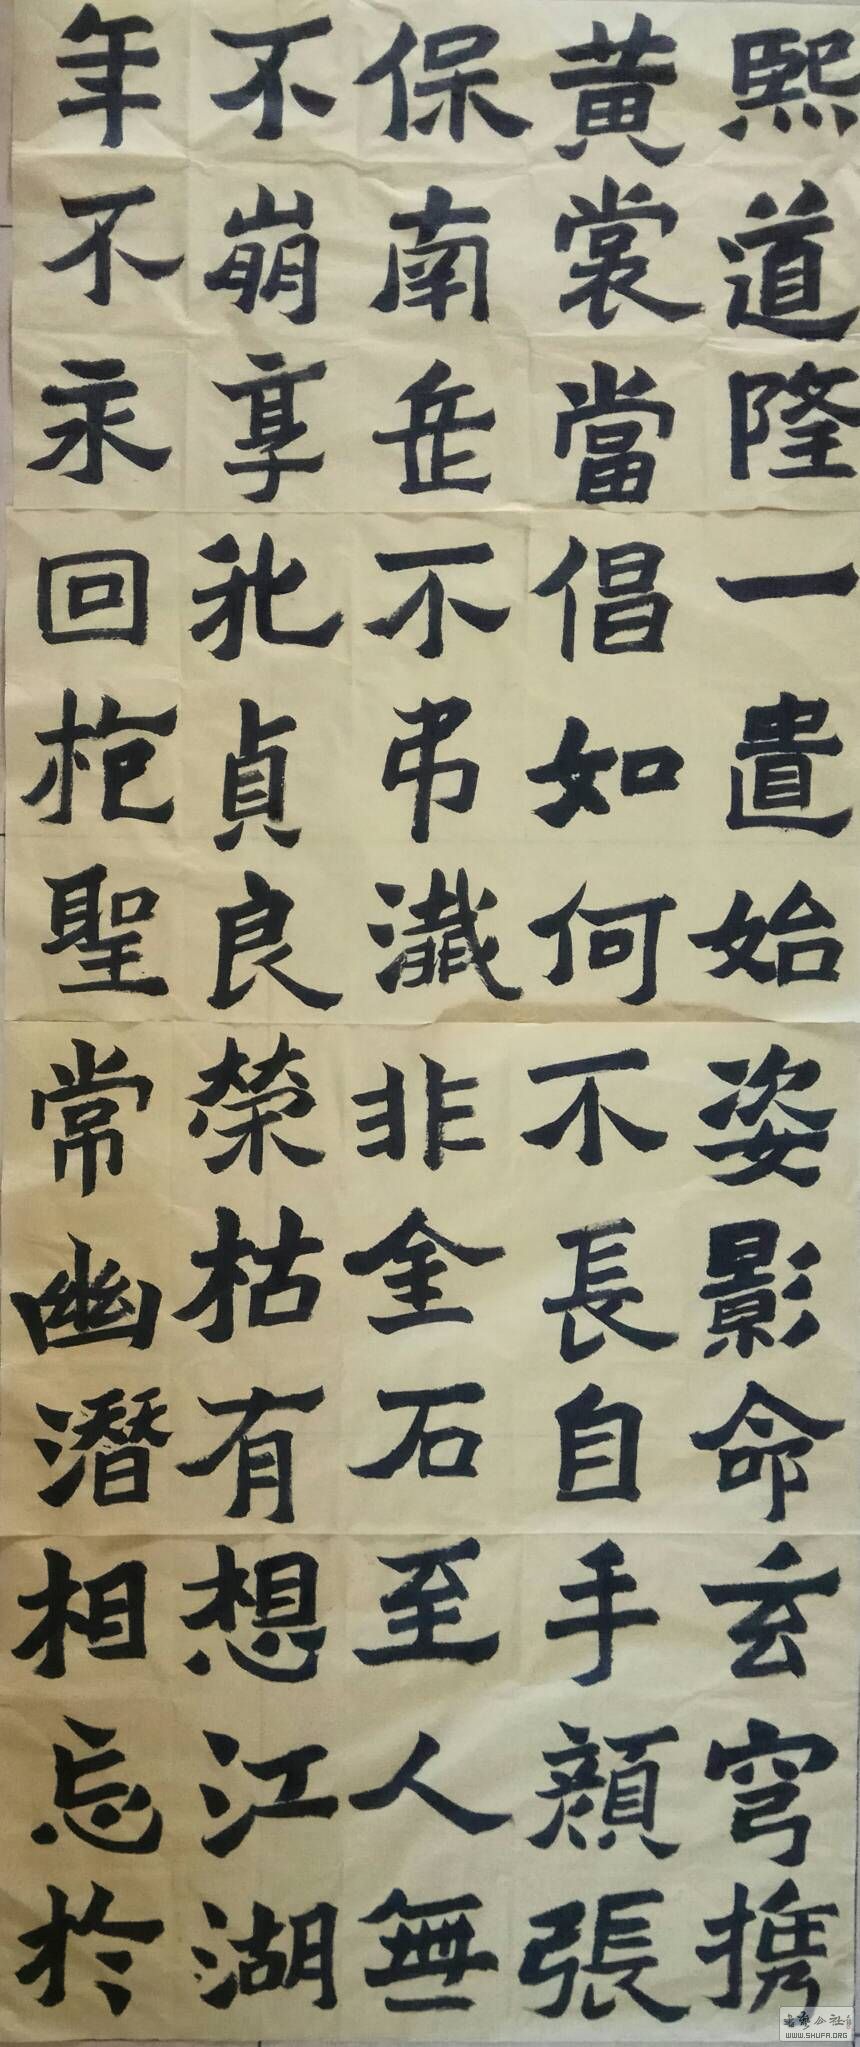 熙道隆
黄裳當
保南岳
不崩享
年不永
一遣始
倡如何
不弔瀸
我貞良
回聖
姿影命
不長自
非金石
榮枯有
常幽潛
玄穹携
手顏張
至人無
想江湖
相忘於
WWW.SHUFA.ORG